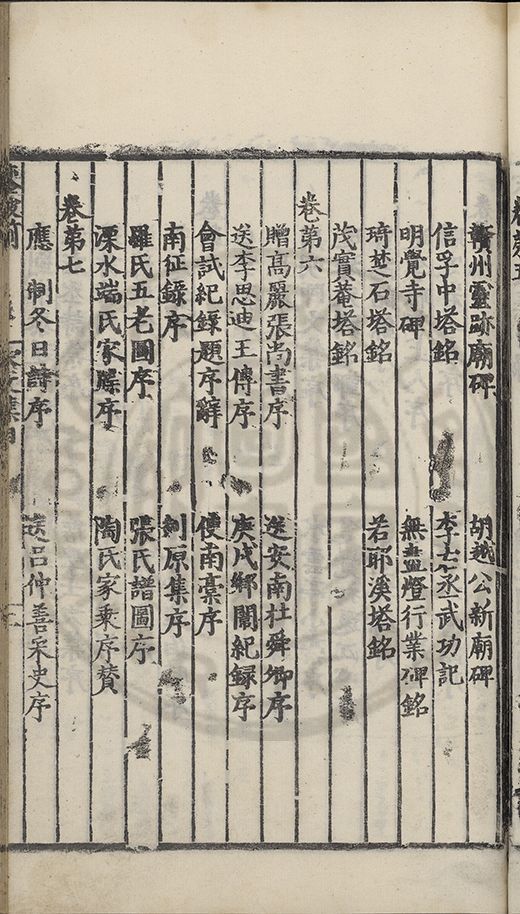 贑州靈跡廟碑　胡越公新廟碑
信孚中塔銘　李士丞武功記
明覺寺碑　無盡燈行業碑銘
琦楚石塔銘　若耶溪塔銘
茂實菴塔銘
卷第六
贈高麗張尚書序　送安南杜舜卿序
送李思迪王傅序　庚戌鄉闈紀録序
會試紀録題序辭　使南稾序
南征録序　剡原集序
羅氏五老圖序　張氏譜圖序
溧水端氏家牒序　陶氏家乗序賛
卷第七
應　制冬日詩序　送吕仲善采史序